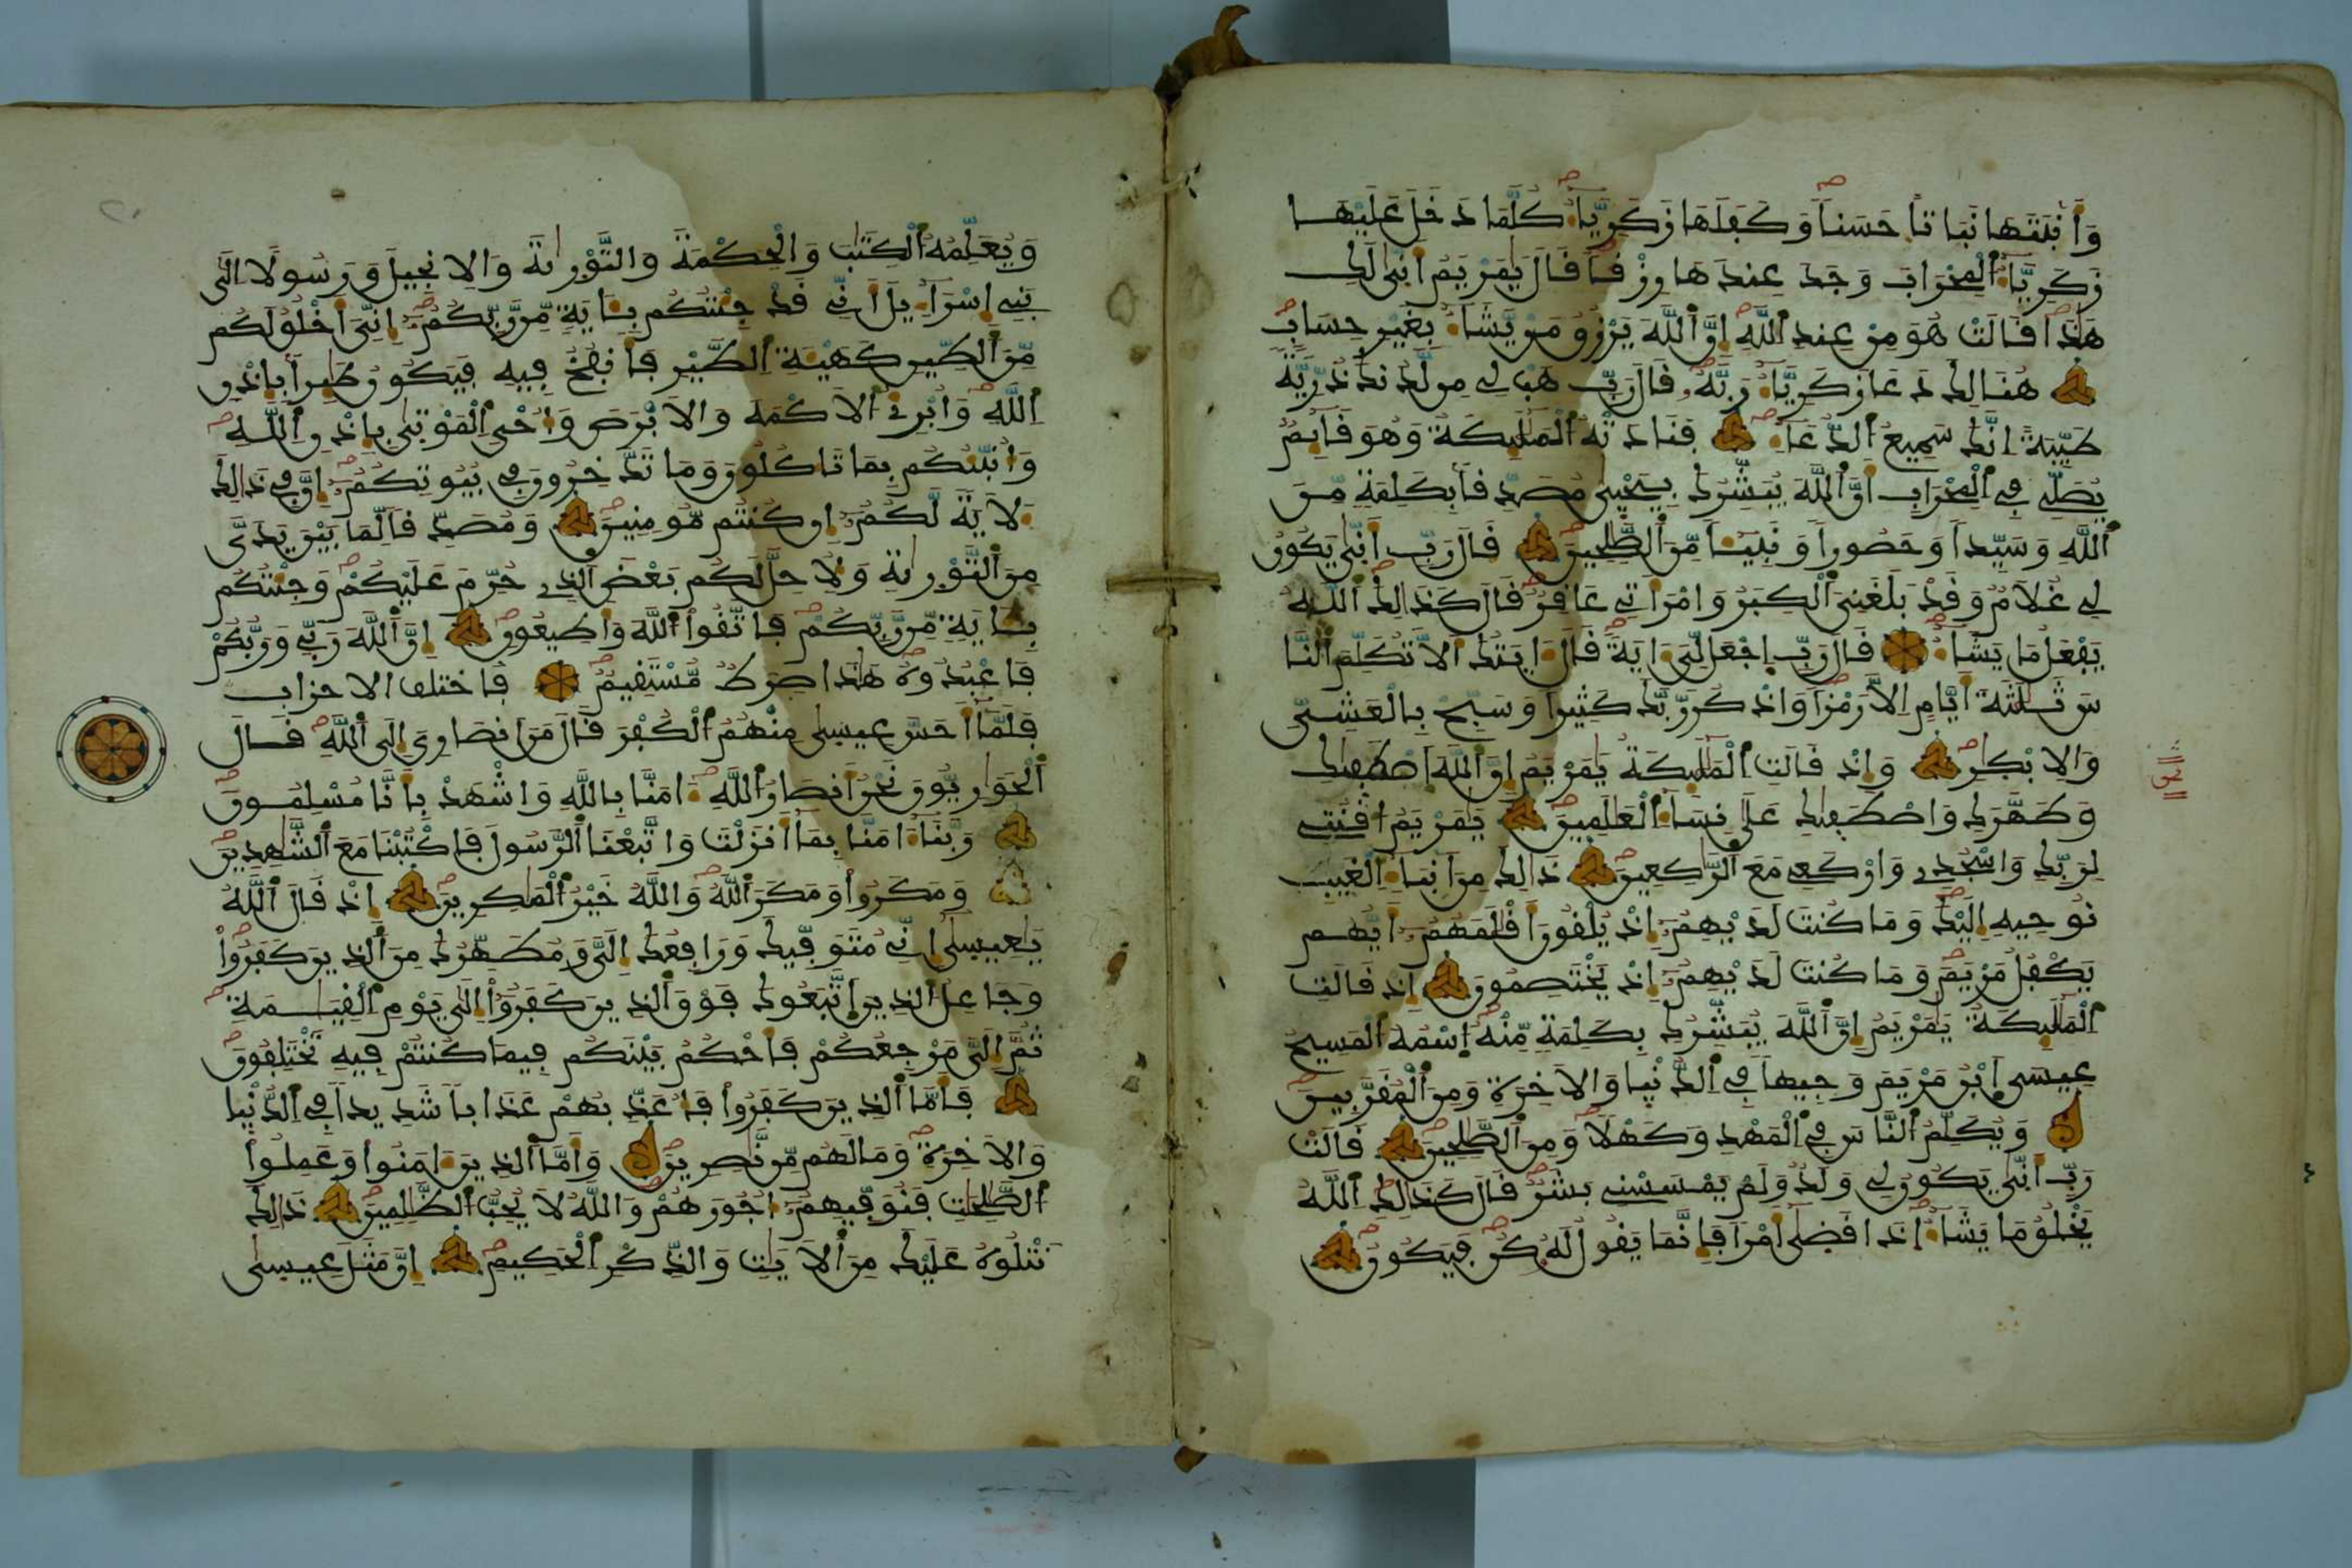 وَأَنۢبَتَهَا نَبَاتاً حَسَناً وَكَفَلَهَا زَكَرِيَّآءُ كُلَّمَا دَخَلَ عَلَيْهَا
زَكَرِيَّآءُ اَ۬لْمِحْرَابَ وَجَدَ عِندَهَا رِزْقاً قَالَ يَٰمَرْيَمُ أَنّ۪ىٰ لَكِ
هَٰذَا قَالَتْ هُوَ مِنْ عِندِ اِ۬للَّهِ إِنَّ اَ۬للَّهَ يَرْزُقُ مَنْ يَّشَآءُ بِغَيْرِ حِسَابٍ
هُنَالِكَ دَعَا زَكَرِيَّآءُ رَبَّهُۥ قَالَ رَبِّ هَبْ لِي مِن لَّدُنكَ ذُرِّيَّةً
طَيِّبَةً اِنَّكَ سَمِيعُ اُ۬لدُّعَآءِ فَنَادَتْهُ اُ۬لْمَلَٰٓئِكَةُ وَهُوَ قَآئِمٌ
يُصَلِّي فِي اِ۬لْمِحْرَابِ أَنَّ اَ۬للَّهَ يُبَشِّرُكَ بِيَحْيۭىٰ مُصَدِّقاَۢ بِكَلِمَةٍ مِّنَ
اَ۬للَّهِ وَسَيِّداً وَحَصُوراً وَنَبِيٓـٔاً مِّنَ اَ۬لصَّٰلِحِينَ قَالَ رَبِّ أَنّ۪ىٰ يَكُونُ
لِي غُلَٰمٌ وَقَدْ بَلَغَنِيَ اَ۬لْكِبَرُ وَامْرَأَتِي عَاقِرٌ قَالَ كَذَٰلِكَ اَ۬للَّهُ
يَفْعَلُ مَا يَشَآءُ قَالَ رَبِّ اِجْعَل لِّيَ ءَايَةً قَالَ ءَايَتُكَ أَلَّا تُكَلِّمَ اَ۬لنَّا
سَ ثَلَٰثَةَ أَيَّامٍ اِلَّا رَمْزاً وَاذْكُر رَّبَّكَ كَثِيراً وَسَبِّحْ بِالْعَشِيِّ
وَالِابْكَٰرِ وَإِذْ قَالَتِ اِ۬لْمَلَٰٓئِكَةُ يَٰمَرْيَمُ إِنَّ اَ۬للَّهَ اَ۪صْطَفَيٰكِ
وَطَهَّرَكِ وَاصْطَفَيٰكِ عَلَىٰ نِسَآءِ اِ۬لْعَٰلَمِينَ يَٰمَرْيَمُ اُ۟قْنُتِي
لِرَبِّكِ وَاسْجُدِي وَارْكَعِي مَعَ اَ۬لرَّٰكِعِينَ ذَٰلِكَ مِنَ اَنۢبَآءِ اِ۬لْغَيْبِ
نُوحِيهِ إِلَيْكَ وَمَا كُنتَ لَدَيْهِمُۥٓ إِذْ يُلْقُونَ أَقْلَٰمَهُمُۥٓ أَيُّهُمْ
يَكْفُلُ مَرْيَمَ وَمَا كُنتَ لَدَيْهِمُۥٓ إِذْ يَخْتَصِمُونَ إِذْ قَالَتِ
اِ۬لْمَلَٰٓئِكَةُ يَٰمَرْيَمُ إِنَّ اَ۬للَّهَ يُبَشِّرُكِ بِكَلِمَةٍ مِّنْهُ اُ۪سْمُهُ اُ۬لْمَسِيحُ
عِيسَى اَ۪بْنُ مَرْيَمَ وَجِيهاً فِي اِ۬لدُّنْيَا وَالَاخِرَةِ وَمِنَ اَ۬لْمُقَرَّبِينَ
وَيُكَلِّمُ اُ۬لنَّاسَ فِي اِ۬لْمَهْدِ وَكَهْلاً وَمِنَ اَ۬لصَّٰلِحِينَ قَالَتْ
رَبِّ أَنّ۪ىٰ يَكُونُ لِي وَلَدٌ وَلَمْ يَمْسَسْنِي بَشَرٌ قَالَ كَذَٰلِكِ اِ۬للَّهُ
يَخْلُقُ مَا يَشَآءُ اِذَا قَضَىٰٓ أَمْراً فَإِنَّمَا يَقُولُ لَهُۥ كُن فَيَكُونُ
وَيُعَلِّمُهُ اُ۬لْكِتَٰبَ وَالْحِكْمَةَ وَالتَّوْر۪ىٰةَ وَالِانجِيلَ وَرَسُولاً اِلَىٰ
بَنِي إِسْرَآءِيلَ أَنِّي قَدْ جِئْتُكُم بِـَٔايَةٍ مِّن رَّبِّكُمُۥٓ إِنِّيَ أَخْلُقُ لَكُم
مِّنَ اَ۬لطِّينِ كَهَيْـَٔةِ اِ۬لطَّيْرِ فَأَنفُخُ فِيهِ فَيَكُونُ طَٰٓئِراَۢ بِإِذْنِ
اِ۬للَّهِ وَأُبْرِئُ اُ۬لَاكْمَهَ وَالَابْرَصَ وَأُحْيِ اِ۬لْمَوْت۪ىٰ بِإِذْنِ اِ۬للَّهِ
وَأُنَبِّئُكُم بِمَا تَاكُلُونَ وَمَا تَدَّخِرُونَ فِي بُيُوتِكُمُۥٓ إِنَّ فِي ذَٰلِكَ
ءَلَايَةً لَّكُمُۥٓ إِن كُنتُم مُّومِنِينَ وَمُصَدِّقاً لِّمَا بَيْنَ يَدَيَّ
مِنَ اَ۬لتَّوْر۪ىٰةِ وَلِأُحِلَّ لَكُم بَعْضَ اَ۬لذِي حُرِّمَ عَلَيْكُمْ وَجِئْتُكُم
بِـَٔايَةٍ مِّن رَّبِّكُمْ فَاتَّقُوا اُ۬للَّهَ وَأَطِيعُونِ إِنَّ اَ۬للَّهَ رَبِّي وَرَبُّكُمْ
فَاعْبُدُوهُ هَٰذَا صِرَٰطٌ مُّسْتَقِيمٌ فاختلف الاحزاب
فَلَمَّآ أَحَسَّ عِيس۪ىٰ مِنْهُمُ اُ۬لْكُفْرَ قَالَ مَنَ اَنصَارِيَ إِلَى اَ۬للَّهِ قَالَ
اَ۬لْحَوَارِيُّونَ نَحْنُ أَنصَارُ اُ۬للَّهِ ءَامَنَّا بِاللَّهِ وَاشْهَدْ بِأَنَّا مُسْلِمُونَ
رَبَّنَآ ءَامَنَّا بِمَآ أَنزَلْتَ وَاتَّبَعْنَا اَ۬لرَّسُولَ فَاكْتُبْنَا مَعَ اَ۬لشَّٰهِدِينَ
وَمَكَرُوا وَمَكَرَ اَ۬للَّهُ وَاللَّهُ خَيْرُ اُ۬لْمَٰكِرِينَ إِذْ قَالَ اَ۬للَّهُ
يَٰعِيس۪ىٰٓ إِنِّي مُتَوَفِّيكَ وَرَافِعُكَ إِلَيَّ وَمُطَهِّرُكَ مِنَ اَ۬لذِينَ كَفَرُوا
وَجَاعِلُ اُ۬لذِينَ اَ۪تَّبَعُوكَ فَوْقَ اَ۬لذِينَ كَفَرُوٓا إِلَىٰ يَوْمِ اِ۬لْقِيَٰمَةِ
ثُمَّ إِلَيَّ مَرْجِعُكُمْ فَأَحْكُمُ بَيْنَكُمْ فِيمَا كُنتُمْ فِيهِ تَخْتَلِفُونَ
فَأَمَّا اَ۬لذِينَ كَفَرُوا فَأُعَذِّبُهُمْ عَذَاباً شَدِيداً فِي اِ۬لدُّنْيَا
وَالَاخِرَةِ وَمَا لَهُم مِّن نَّٰصِرِينَ وَأَمَّا اَ۬لذِينَ ءَامَنُوا وَعَمِلُوا
اُ۬لصَّٰلِحَٰتِ فَنُوَفِّيهِمُۥٓ أُجُورَهُمْ وَاللَّهُ لَا يُحِبُّ اُ۬لظَّٰلِمِينَ ذَٰلِكَ
نَتْلُوهُ عَلَيْكَ مِنَ اَ۬لَايَٰتِ وَالذِّكْرِ اِ۬لْحَكِيمِ إِنَّ مَثَلَ عِيس۪ىٰ